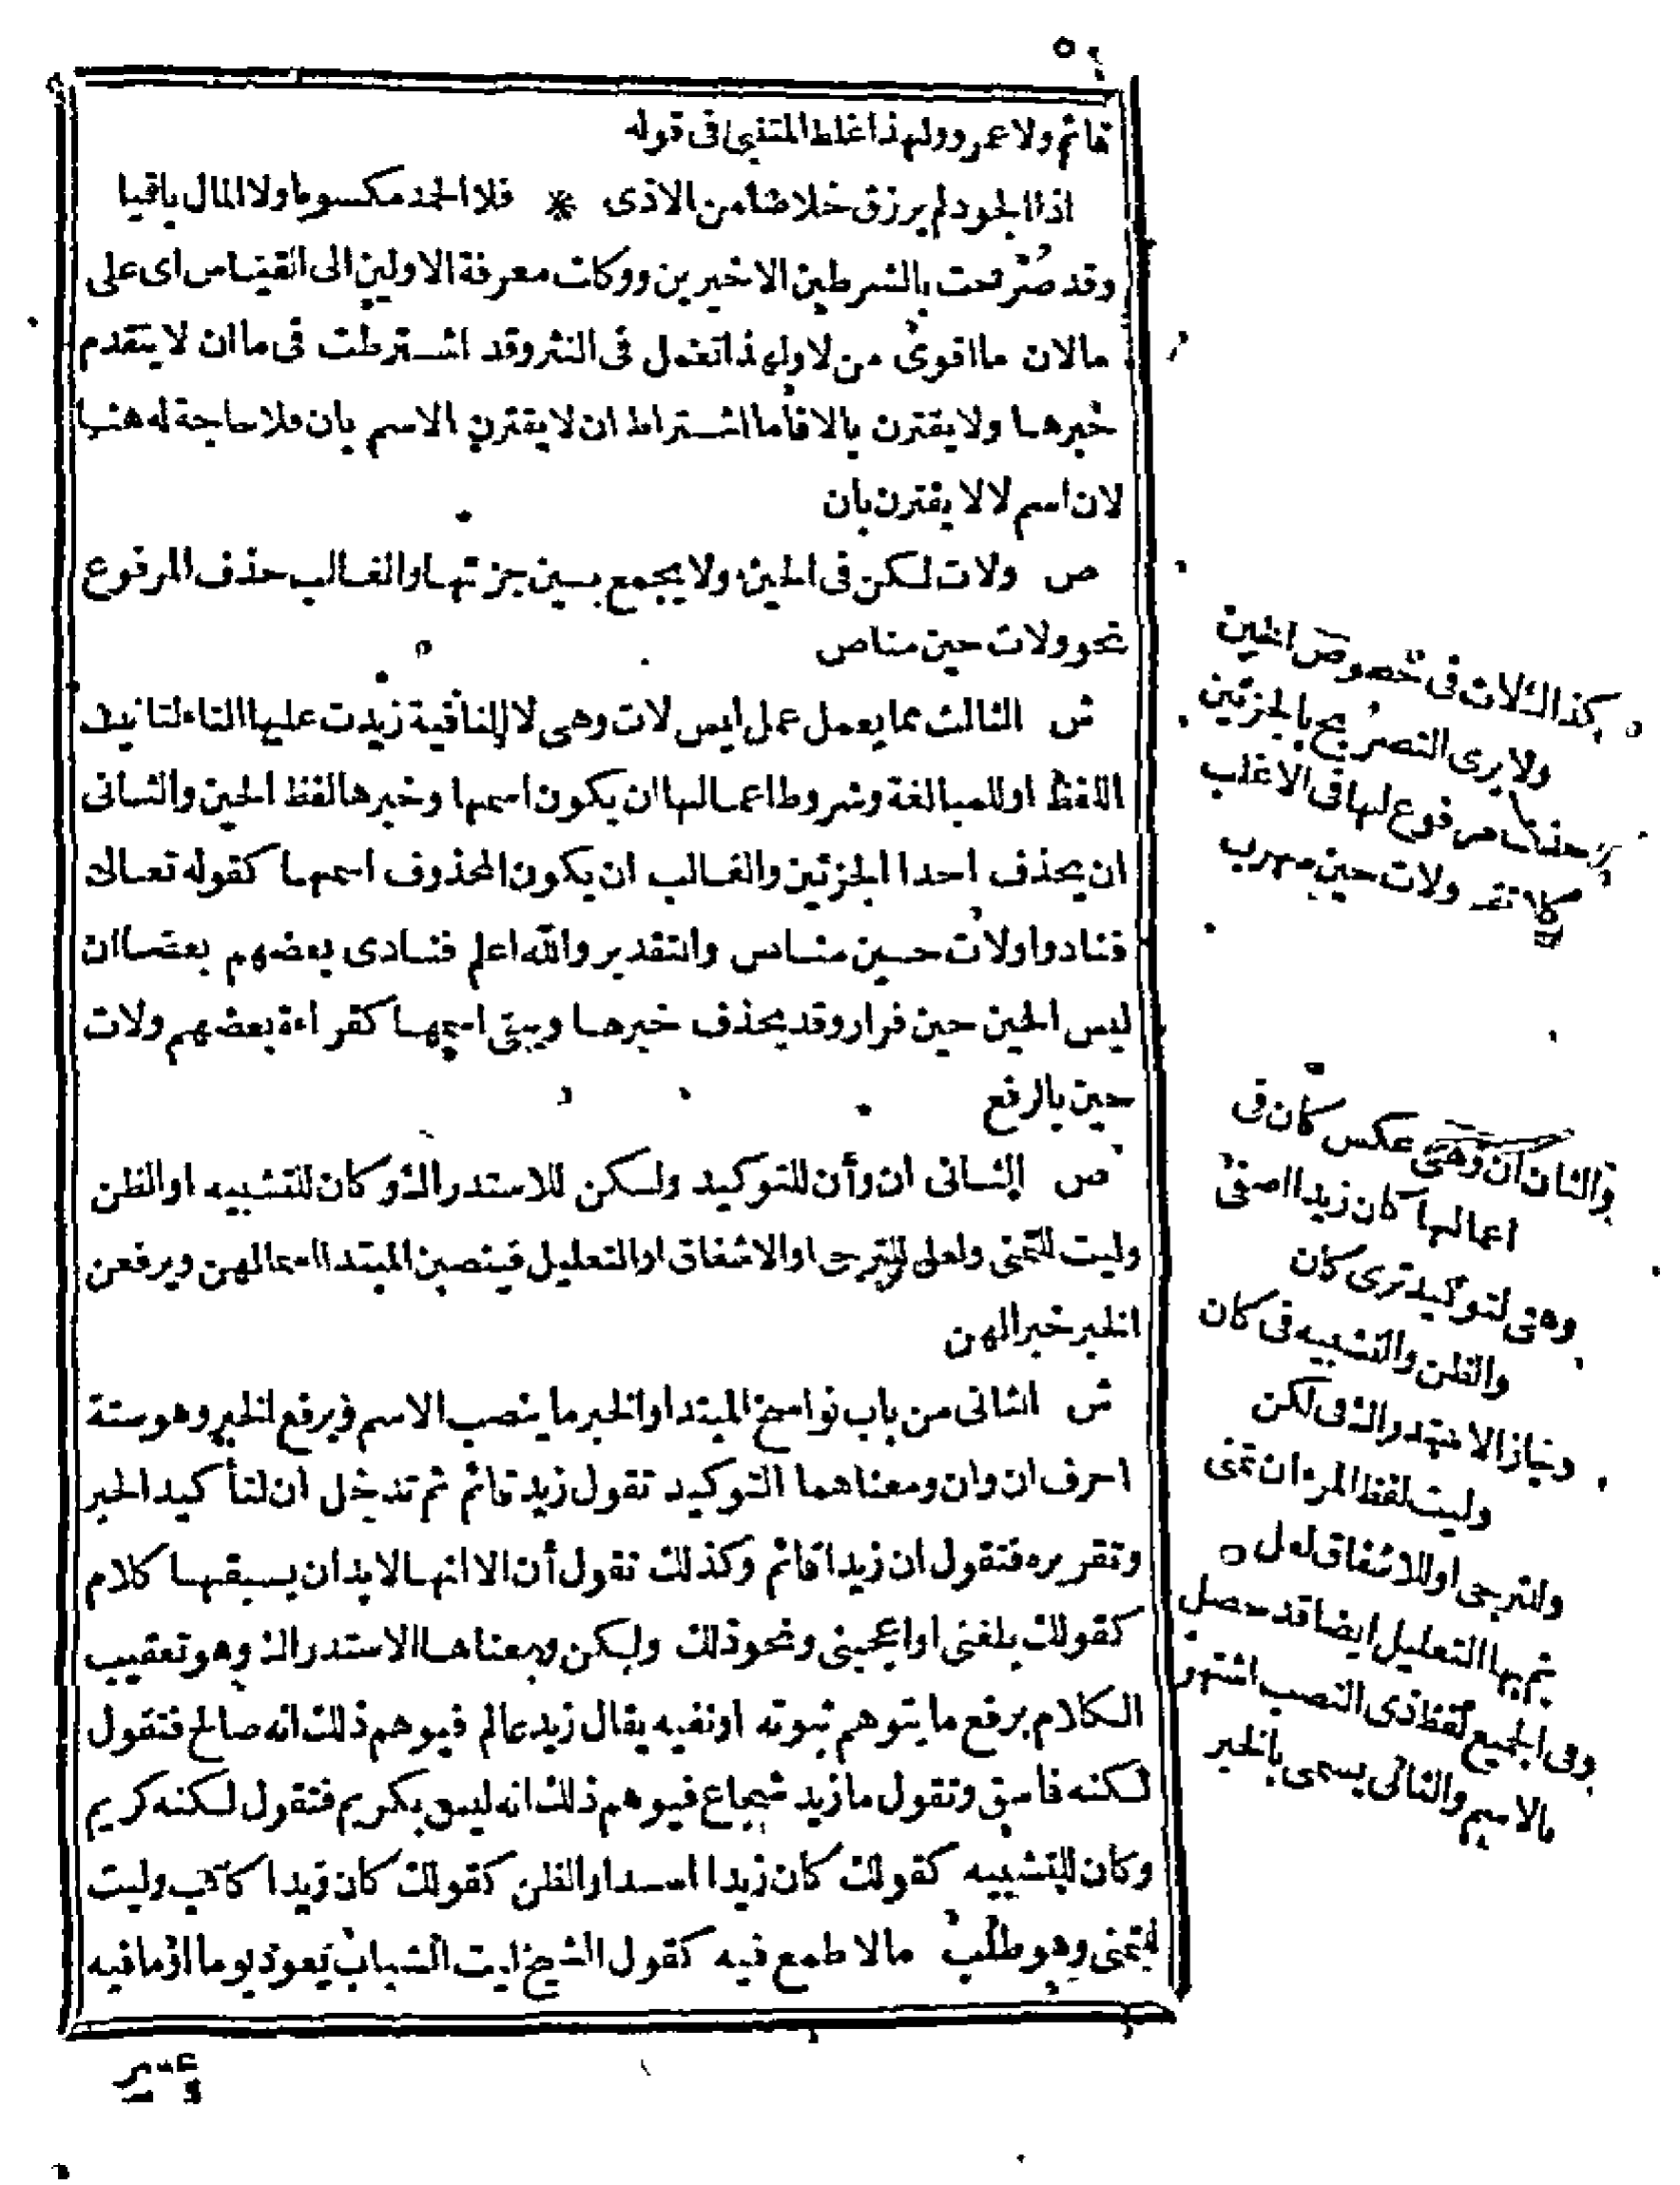 ٥٢
قائم ولا عمرو ولهذا غلط المتنبى فى قوله
اذا الجود لم يرزق خلاصا من الاذى * فلا الحمد مكسوبا ولا المال باقيا
وقد صرحت بالشرطين الاخيرين ووكلت معرفة الاولين الى القياس اى على
ما لان ما اقوى من لا ولهذا تعمل فى النثر وقد اشترطت فى ما ان لا يتقدم
خبرها ولا يقترن بالا فأما اشتراط ان لا يقترن الاسم بان فلا حاجة له هنا
لان اسم لا لا يقترن بان
ص ولات لكن فى الحين ولا يجمع بين جزئيها والغالب حذف المرفوع
نحو ولات حين مناص
ش الثالث مما يعمل عمل ليس لات وهى لا النافية زيدت عليها التاء لتانيث
اللفظ او للمبالغة وشروط اعمالها ان يكون اسمها وخبرها لفظ الحين والثانى
ان يحذف احدا الجزئين والغالب ان يكون المحذوف اسمها كقوله تعالى
فنادوا ولات حين مناص والتقدير والله اعلم فنادى بعضهم بعضا ان
ليس الحين حين فرار وقد يحذف خبرها ويبقى اسمها كقراءة بعضهم ولات
حين بالرفع
ص الثانى ان وأن للتوكيد ولكن للاستدراك وكان للتشبيه او الظن
وليت للتمنى ولعل للترجى او الاشفاق او التعليل فينصبن المبتدا اسما لهن ويرفعن
الخبر خبرا لهن
ش الثانى من باب نواسخ المبتدا والخبر ما ينصب الاسم ويرفع الخبر وهو ستة
احرف ان وان ومعناهما التوكيد تقول زيد قائم ثم تدخل ان لتأكيد الخبر
وتقريره فتقول ان زيدا قائم وكذلك تقول أن الا انها لابد ان يسبقها كلام
كقولك بلغنى او اعجبنى ونحو ذلك ولكن ومعناها الاستدراك وهو تعقيب
الكلام برفع ما يتوهم ثبوته او نفيه يقال زيد عالم فيوهم ذلك انه صالح فتقول
لكنه فاسق وتقول ما زيد شجاع فيوهم ذلك انه ليس بكريم فتقول لكنه كريم
وكان للتشبيه كقولك كان زيدا اسد او الظن كقولك كان زيدا كاتب وليت
للتمنى وهو طلب ما لا طمع فيه كقول الشيخ ليت الشباب يعود يوما او ما فيه
كذا لات فى خصوص الحين
ولا يرى التصريح بالجزئين
حذف مرفوع لها فى الاغلب
ولات حين مهرب
والثان ان وهى عكس كان فى
اعمالها كان زيدا اصفى
وهى لتوكيد ترى كان
والظن والتشبيه فى كان
وجاز الاستدراك فى لكن
وليت لفظ المرء ان تمنى
وللترجى او للاشفاق لعل
بها التعليل ايضا قد حصل
وفى الجميع لفظ ذى النصب اشتهر
بالاسم والتالى يسمى بالخبر